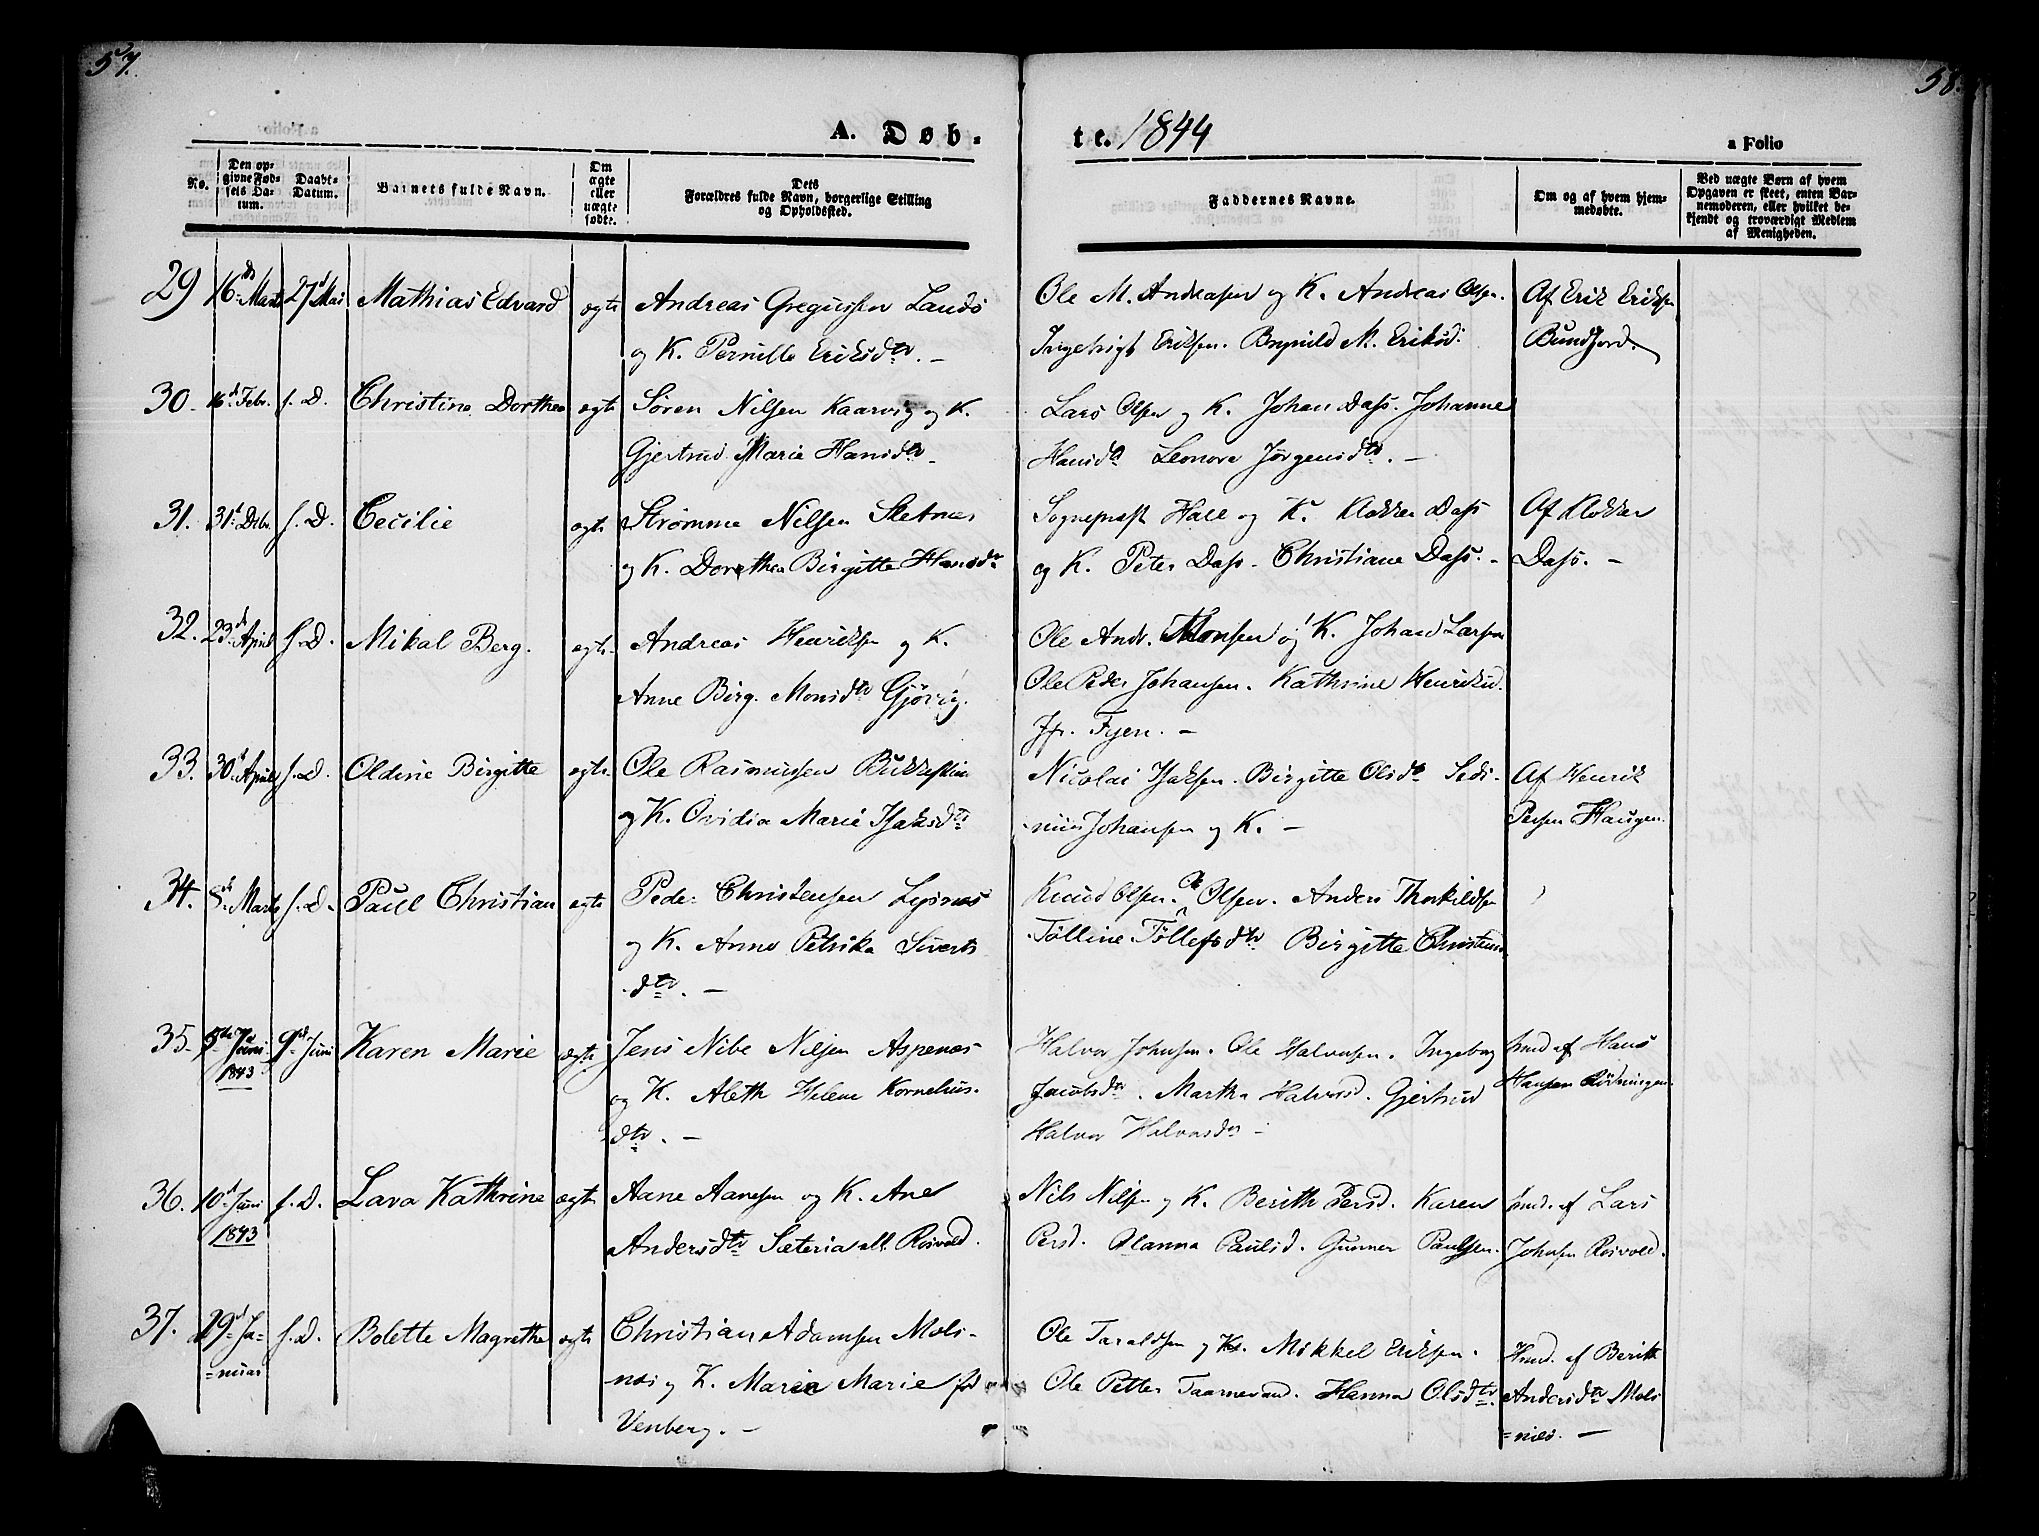 57.
58.
A. Døb-
te. 1844
a Folio
No.
Den op-
givne Fød-
sels Da-
tum.
Daabs-
Datum.
Barnets fulde Navn.
Om
ægte
eller
uægte
fødte.
Dets
Forældres fulde Navn, borgerlige Stilling
og Opholdssted.
Faddernes Navne.
Om og af hvem hjem-
medøbte.
Ved uægte Børn af hvem
Opgaven er skeet, enten Bar-
nemoderen, eller hvilket be-
kjendt og troværdigt Medlem
af Menigheden.
29 16de Marts 27d Mai Mathias Edvard ægte Andreas Gregussen Lands
og K. Pernille Eriksdtr. –
Ole M. Andreasen og K. Andreas Olsen.
Ingebrigt Eriksen. Brynild M. Eriksd.
Af Erik Eriksen
Bundfjord.
30. 16d Febr. s. D. Christine Dorthea ægte Søren Nilsen Kaarvig og K.
Gjertrud Marie Hansdtr.
Lars Olsen og K. Johan Dass. Johanne
Hansdtr Leonora Jørgensdtr. –
31. 31d Debr. s. D. Cecilie ægte Strømme Nilsen Sletnes
og K. Dorethea Birgitte Hansdr
Sogneprest Hall og K. Klokker Dass
og K. Peter Dass. Christiane Dass. –
Af Klokker
Dass. –
32. 23d April s. D. Mikal Berg. ægte Andreas Henriksen og K.
Anne Birg. Monsdtr Gjøvig.
Ole Andr. Monsen og K. Johan Larsen
Ole Peder Johansen. Kathrine Henriksd.
Jfr. Fyen. –
33. 30d April s. D. Oldine Birgitte ægte Ole Rasmussen Bukkesteen
og K. Ovidia Marie Isaksdtr
Nicolai Isaksen. Birgitte Olsdtr Sedi-
niusJohansen og K. –
Af Henrik
Persen Haugen.
34. 8de Marts s. D. Paul Christian ægte Peder Christensen Lysnes
og K. Anne Petrika Siverts
dtr. –
Knud Olsen. Ole Olsen. Anders Thorkildsen
Tølline Tøllefsdtr Birgitte Christens
35. 5te Juni 1843 9de Juni Karen Marie ægte Jens Nibe Nilsen Aspenes
og K. Aleth Helene Kornelius.
dtr. –
Halvor Johnsen. Ole Halvorsen. Ingeborg
Jacobsdr. Martha Halvorsd. Gjertrud
Halvor Halvorsdr –
hmd af Hans
Hansen Rödningen.
36. 10d Juni 1843 s. D. Lava Kathrine ægte Aane Aanesen og K. Ane
Andersdtr Sæteria all. Roivold.
Nils Nilsen og K. Berith Persd. Karen
Persd. Olanna Paulsd. Gunner Paulsen.
hmd. af Lars
Johnsen Roivold.
37. 29d Ja-
=nuar s. D. Bolette Magrethe ægte Christian Adamsen Mols-
næs og K. Maria Marie fød
Venberg. –
Ole Taraldsen og K. Mikkel Eriksen.
Ole Petter Taarnevand. Hanna Olsdtr.
Hmd. af Berith
Andersdtr Mols
=næs. –